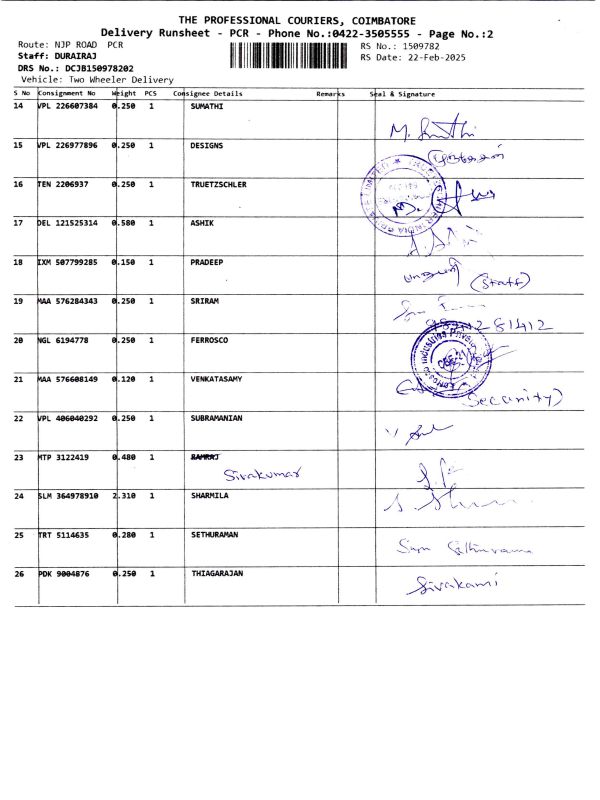 THE PROFESSIONAL COURIERS, COIMBATORE
Delivery Runsheet - PCR - Phone No.:0422-3505555 - Page No.:2
Route: NJP ROAD PCR
RS No.: 1509782
Staff: DURAIRAJ
RS Date: 22-Feb-2025
DRS No.: DCJB150978202
Vehicle: Two Wheeler Delivery
S No Consignment No Weight PCS Consignee Details Remarks Seal & Signature
14 VPL 226607384 0.250 1 SUMATHI
15 VPL 226977896 0.250 1 DESIGNS
16 TEN 2206937 0.250 1 TRUETZSCHLER
17 DEL 121525314 0.580 1 ASHIK
18 IXM 507799285 0.150 1 PRADEEP
(Staff)
19 MAA 576284343 0.250 1 SRIRAM
20 NGL 6194778 0.250 1 FERROSCO
21 MAA 576608149 0.120 1 VENKATASAMY
Security)
22 VPL 406040292 0.250 1 SUBRAMANIAN
23 MTP 3122419 0.480 1 RAMRAJ
Sivakumar
24 SLM 364978910 2.310 1 SHARMILA
25 TRT 5114635 0.280 1 SETHURAMAN
26 PDK 9004876 0.250 1 THIAGARAJAN
Sivakami